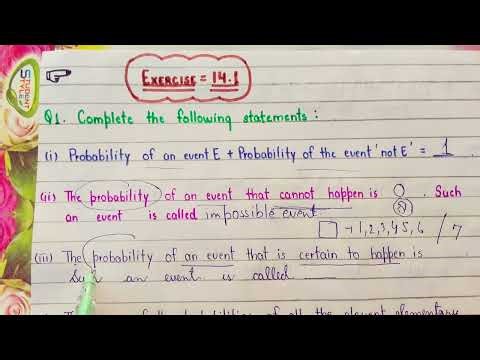 STUDENT STYLE
EXERCISE = 14.1
Q1. Complete the following statements :
(i) Probability of an event E + Probability of the event 'not E' = 1.
(ii) The probability of an event that cannot happen is 0. Such
an event is called impossible event
→ 1,2,3,4,5,6 / 7
(iii) The probability of an event that is certain to happen is
Such an event is called